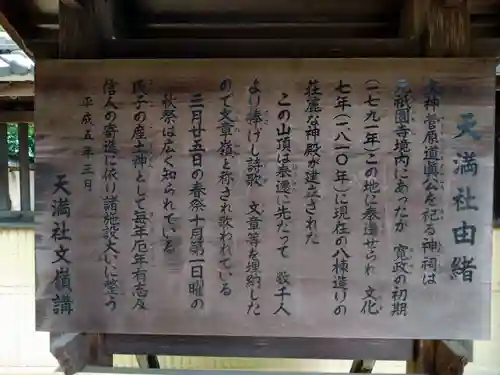 天満社由緒
天神菅原道真公を祀る神祠は
元祇園寺境内にあったが 寛政の初期
(一七九一年)この地に奉遷せられ 文化
七年(一八一〇年)に現在の八棟造りの
荘麗な神殿が建立された
この山頂は奉遷に先だって 数千人
より捧げし詩歌 文章等を埋納した
ので文章嶺と称され歌われている
三月廿五日の春祭十月第一日曜の
秋祭は広く知られている
氏子の産土神として毎年厄年有志及
信人の寄進に依り諸施設大いに整う
平成五年三月
天満社文嶺講